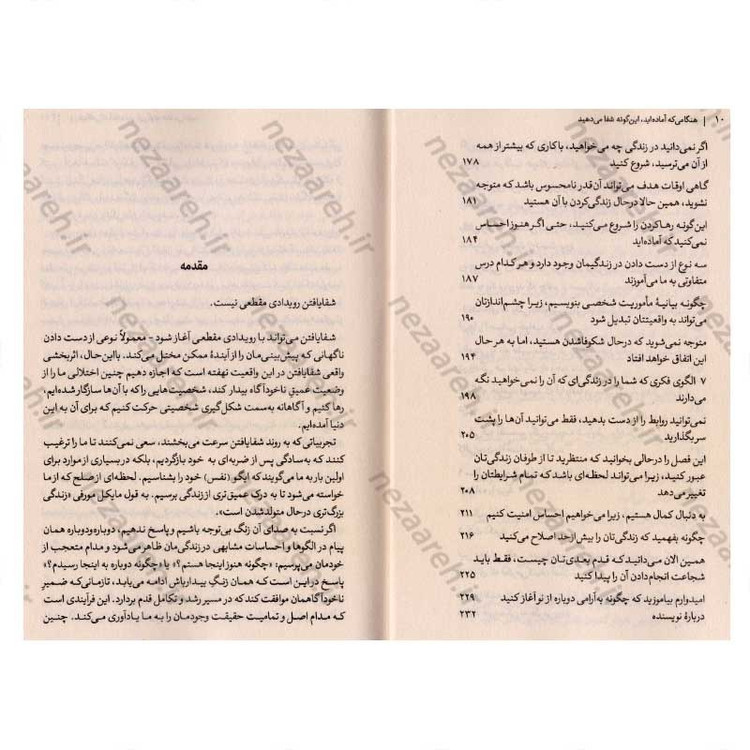 ۱۰ | هنگامی‌که آماده‌اید، این‌گونه شفا می‌دهید
اگر نمی‌دانید در زندگی چه می‌خواهید، با کاری که بیشتر از همه
از آن می‌ترسید، شروع کنید ۱۷۸
گاهی اوقات هدف می‌تواند آن‌قدر نامحسوس باشد که متوجه
نشوید، همین حالا درحال زندگی‌کردن با آن هستید ۱۸۱
این‌گونه رهاکردن را شروع می‌کنید، حتی اگر هنوز احساس
نمی‌کنید که آماده‌اید ۱۸۴
سه نوع از دست دادن در زندگیمان وجود دارد و هر کدام درس
متفاوتی به ما می‌آموزند ۱۸۷
چگونه بیانیهٔ مأموریت شخصی بنویسیم، زیرا چشم‌اندازتان
می‌تواند به واقعیتتان تبدیل شود ۱۹۰
متوجه نمی‌شوید که درحال شکوفاشدن هستید، اما به هر حال
این اتفاق خواهد افتاد ۱۹۴
۷ الگوی فکری که شما را در زندگی‌ای که آن را نمی‌خواهید نگه
می‌دارند ۱۹۸
نمی‌توانید روابط را از دست بدهید، فقط می‌توانید آن‌ها را پشت
سر بگذارید ۲۰۵
این فصل را درحالی بخوانید که منتظرید تا از طوفان زندگی‌تان
عبور کنید، زیرا می‌تواند لحظه‌ای باشد که تمام شرایطتان را
تغییر می‌دهد ۲۰۸
به دنبال کمال هستیم، زیرا می‌خواهیم احساس امنیت کنیم ۲۱۱
چگونه بفهمید که زندگی‌تان را بیش‌ازحد اصلاح می‌کنید ۲۱۶
همین الان می‌دانید که قدم بعدی‌تان چیست، فقط باید
شجاعت انجام‌دادن آن را پیدا کنید ۲۲۵
امیدوارم بیاموزید که چگونه به‌آرامی دوباره از نو آغاز کنید ۲۲۹
دربارهٔ نویسنده ۲۳۲
مقدمه
شفایافتن رویدادی مقطعی نیست.
شفایافتن می‌تواند با رویدادی مقطعی آغاز شود - معمولاً نوعی از دست دادن
ناگهانی که پیش‌بینی‌مان را از آیندهٔ ممکن مختل می‌کند. بااین‌حال، اثربخشی
واقعی شفایافتن در این واقعیت نهفته است که اجازه دهیم چنین اختلالی ما را از
وضعیت عمیق ناخودآگاه بیدار کند، شخصیت‌هایی را که با آن‌ها سازگار شده‌ایم،
رها کنیم و آگاهانه به‌سمت شکل‌گیری شخصیتی حرکت کنیم که برای آن به این
دنیا آمده‌ایم.
تجربیاتی که به روند شفایافتن سرعت می‌بخشند، سعی نمی‌کنند تا ما را ترغیب
کنند که به‌سادگی پس از ضربه‌ای به خود بازگردیم، بلکه در بسیاری از موارد برای
اولین بار به ما می‌گویند که ایگو (نفس) خود را بشناسیم. لحظه‌ای از صلح که از ما
خواسته می‌شود تا به درک عمیق‌تری از زندگی برسیم. به قول مایکل مورفی «زندگی
بزرگ‌تری درحال متولدشدن است».
اگر نسبت به صدای آن زنگ بی‌توجه باشیم و پاسخ ندهیم، دوباره‌ودوباره همان
پیام در الگوها و احساسات مشابهی در زندگی‌مان ظاهر می‌شود و مدام متعجب از
خودمان می‌پرسیم: «چگونه هنوز اینجا هستم؟» یا «چگونه دوباره به اینجا رسیدم؟»
پاسخ در این است که همان زنگِ بیدارباش ادامه می‌یابد، تازمانی‌که ضمیر
ناخودآگاهمان موافقت کند که در مسیر رشد و تکامل قدم بردارد. این فرآیندی است
که مدام اصل و تمامیت حقیقت وجودمان را به ما یادآوری می‌کند. چنین
nezaareh.ir
nezaareh.ir
nezaareh.ir
nezaareh.ir
nezaareh.ir
nezaareh.ir